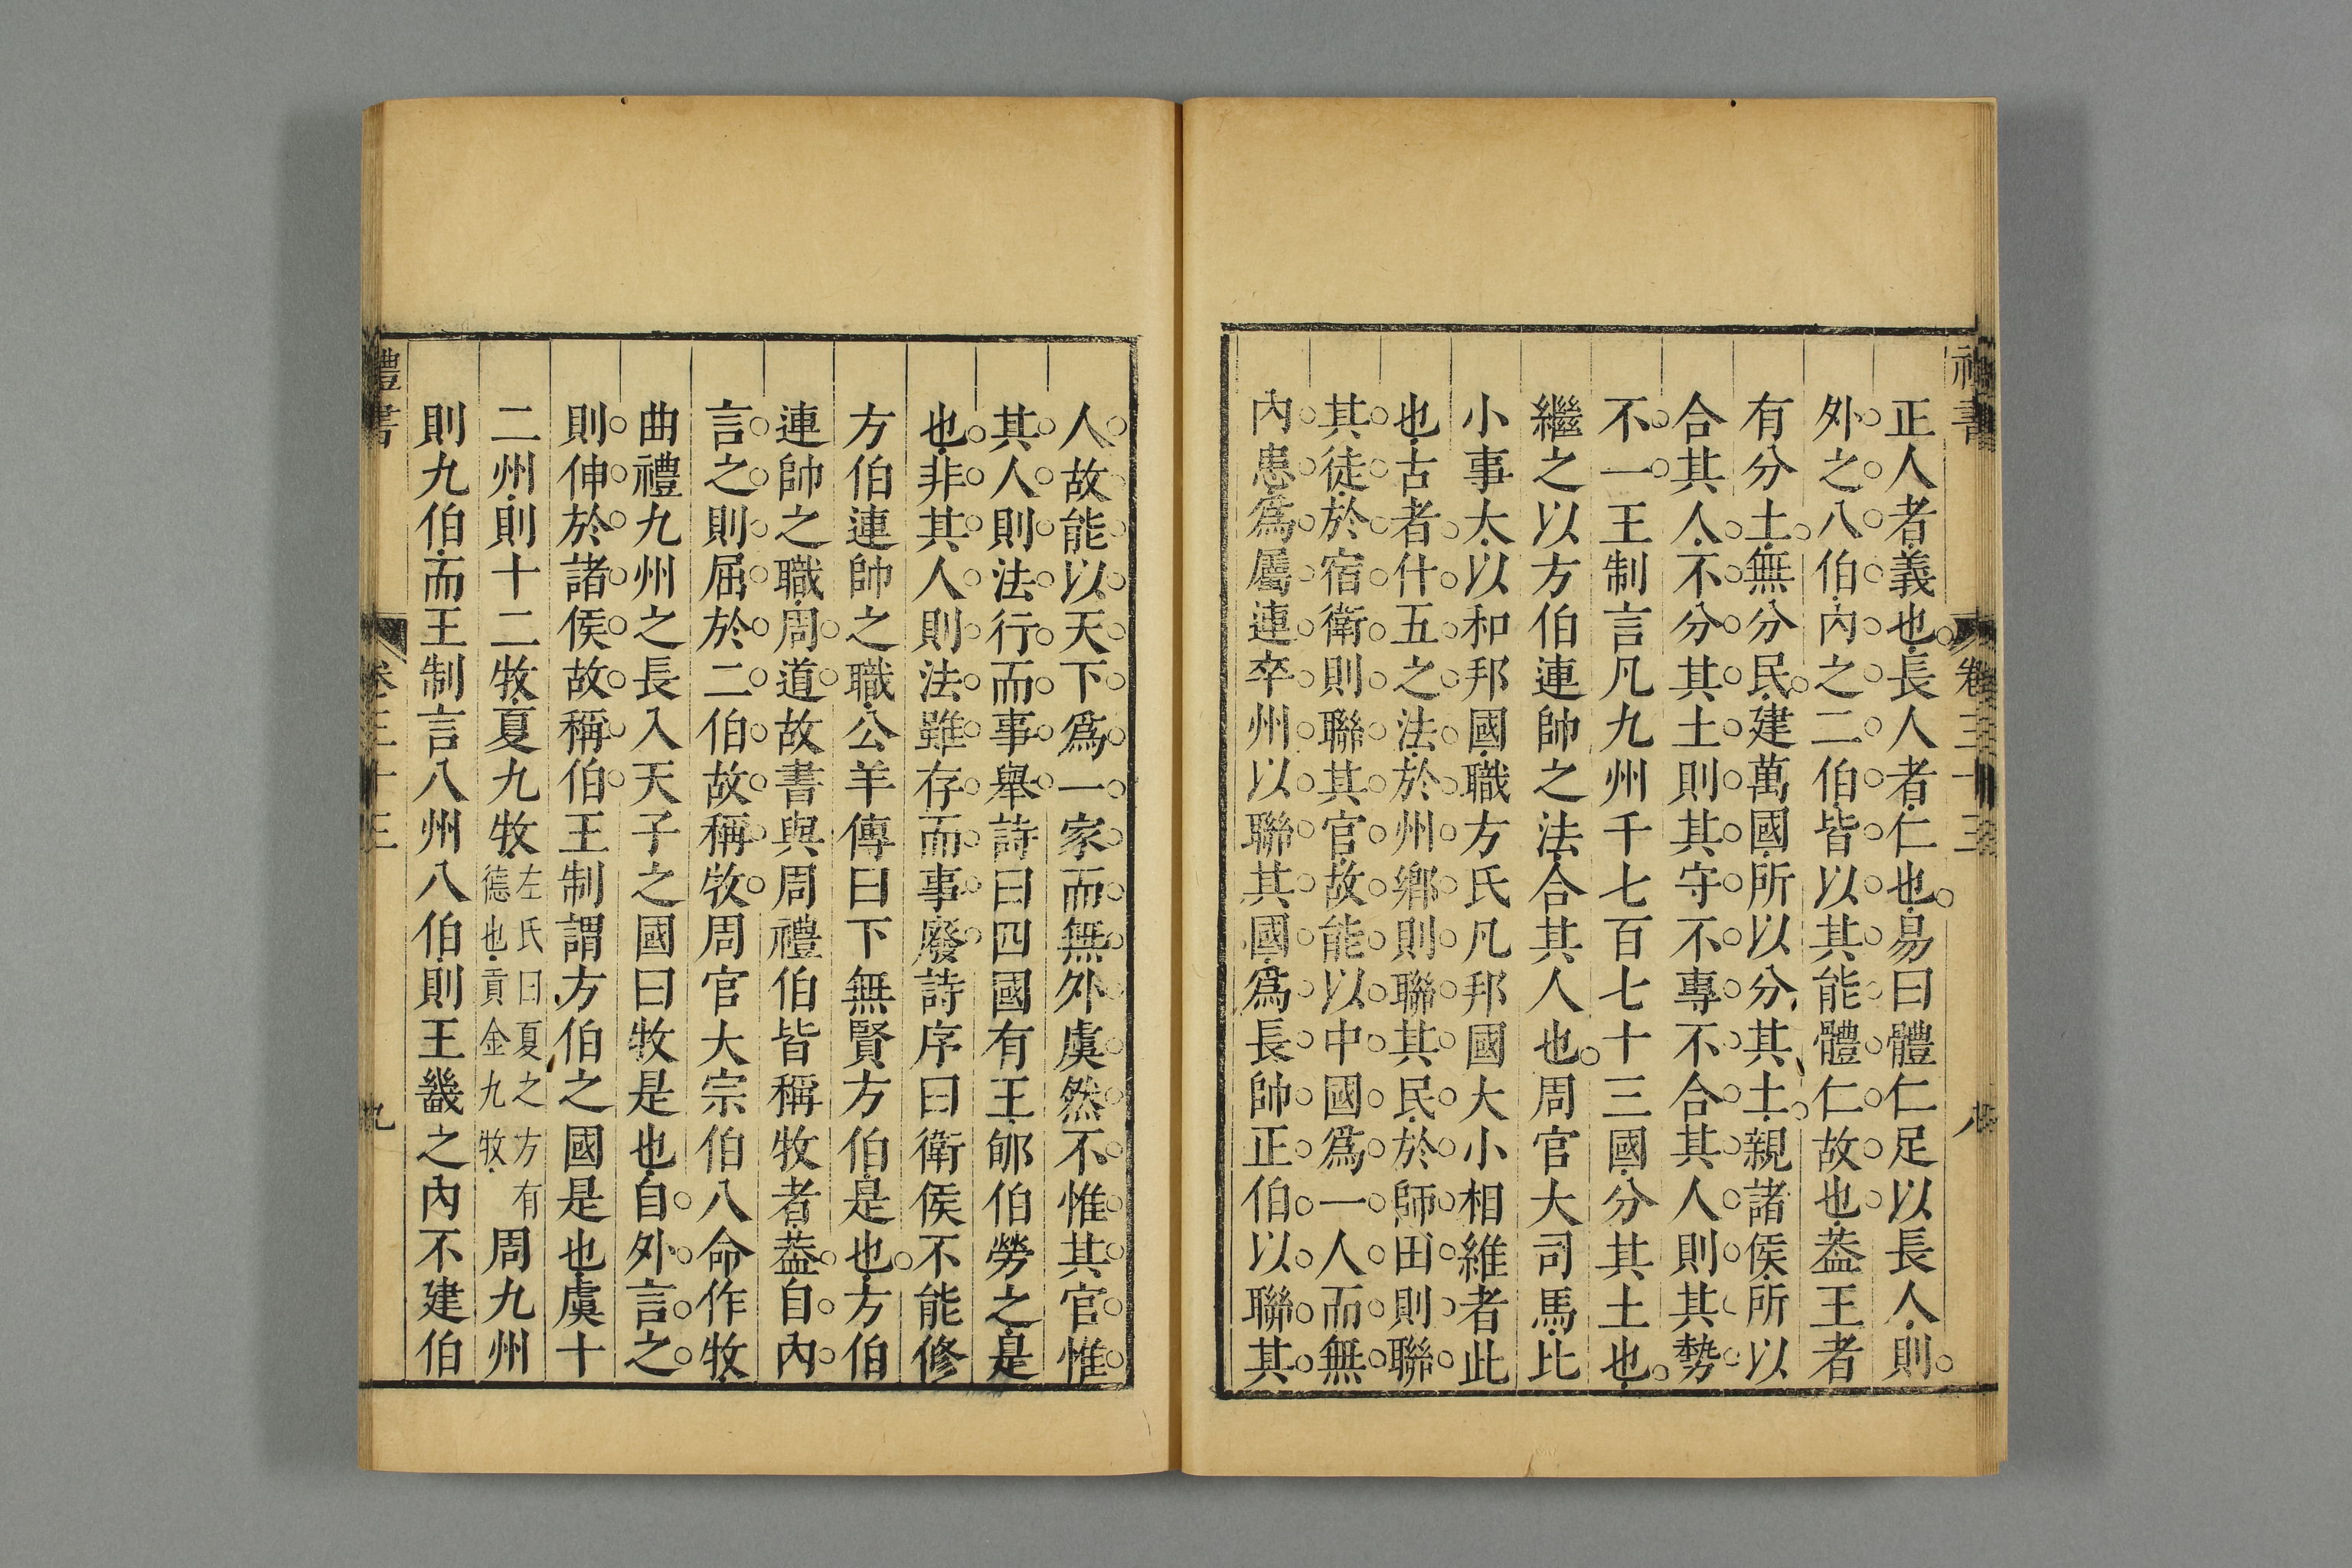 禮書 卷三十三 八
正人者義也長人者仁也易曰體仁足以長人則
外之八伯內之二伯皆以其能體仁故也葢王者
有分土無分民建萬國所以分其土親諸侯所以
合其人不分其土則其守不專不合其人則其勢
不一王制言凡九州千七百七十三國分其土也
繼之以方伯連帥之法合其人也周官大司馬比
小事大以和邦國職方氏凡邦國大小相維者此
也古者什五之法於州鄉則聯其民於師田則聯
其徒於宿衛則聯其官故能以中國爲一人而無
內患爲屬連卒州以聯其國爲長帥正伯以聯其
人故能以天下爲一家而無外虞然不惟其官惟
其人則法行而事舉詩曰四國有王郇伯勞之是
也非其人則法雖存而事廢詩序曰衛侯不能修
方伯連帥之職公羊傳曰下無賢方伯是也方伯
連帥之職周道故書與周禮伯皆稱牧者葢自內
言之則屈於二伯故稱牧周官大宗伯八命作牧
曲禮九州之長入天子之國曰牧是也自外言之
則伸於諸侯故稱伯王制謂方伯之國是也虞十
二州則十二牧夏九牧左氏曰夏之方有德也貢金九牧周九州
則九伯而王制言八州八伯則王畿之內不建伯
禮書 卷三十三 九